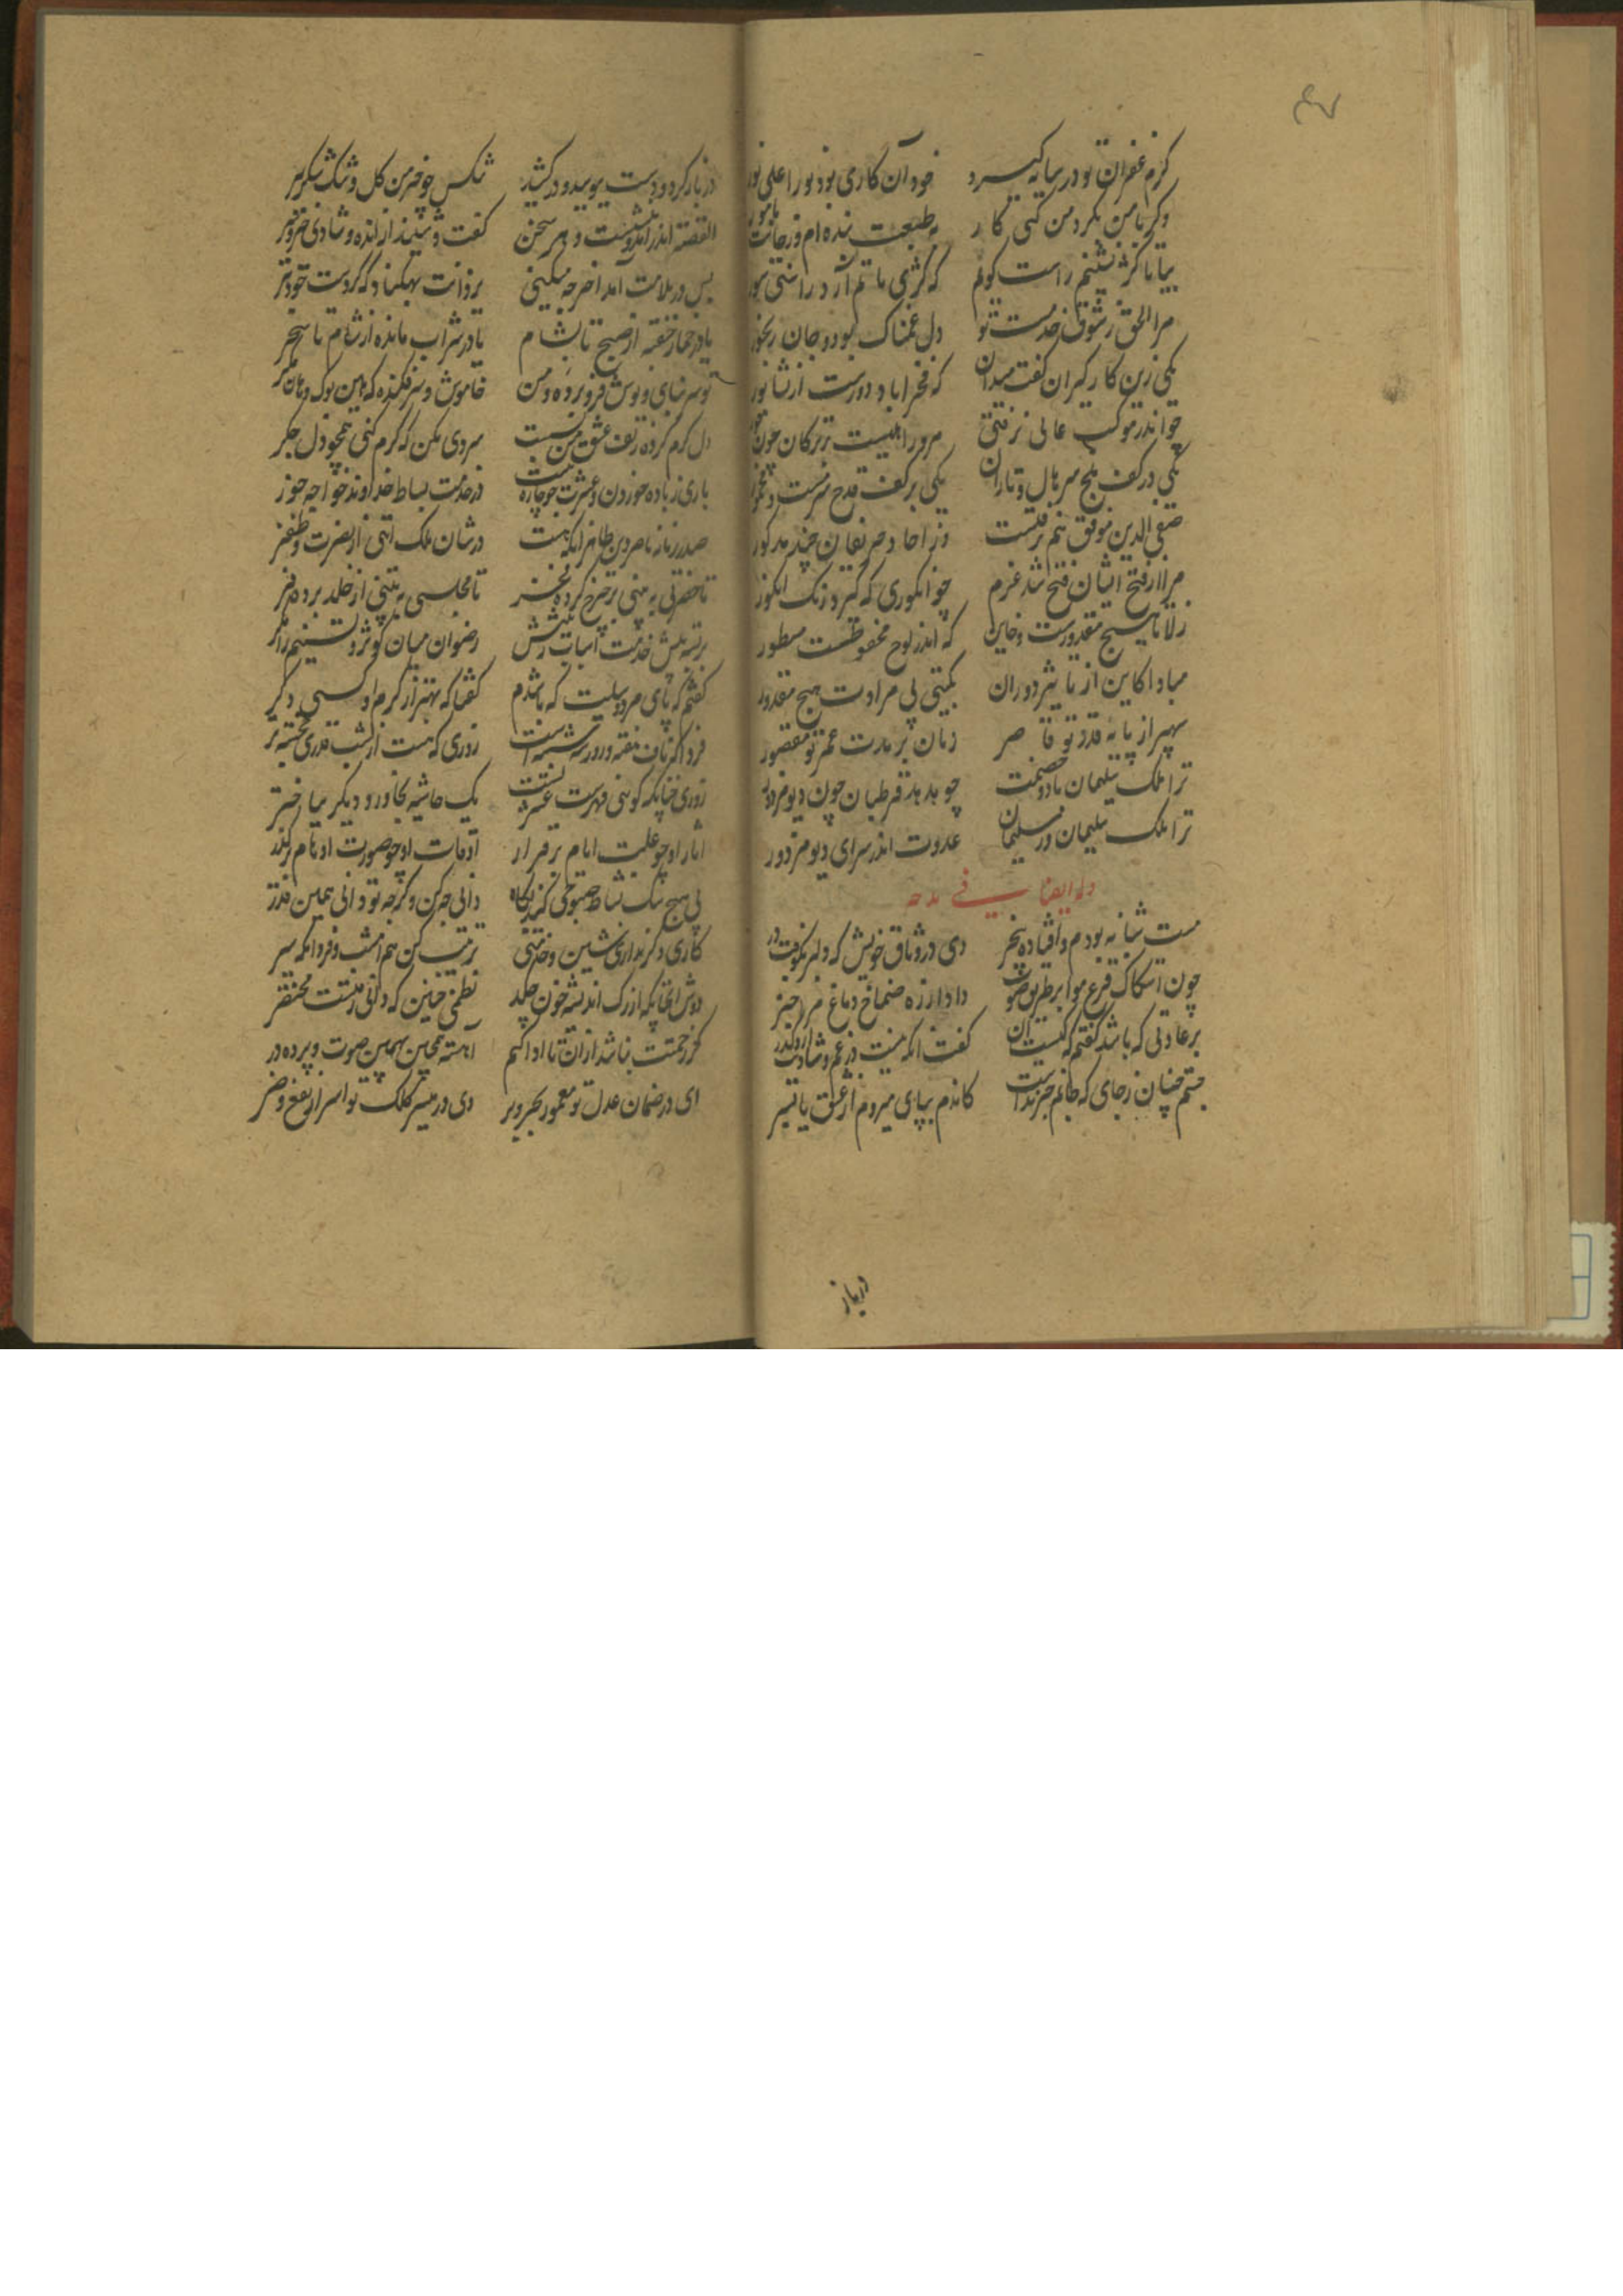 ۴۷
کرم غفران تو در سایه کیرد خود آن کاری بود نورا علی نور
وکر با من نکردمن کنی کار به طبیعت بنده ام وز جانت مامور
بیا تا کژ نشینم راست کویم که کژی ماتم آرد راستی سور
مرا الحق ز شوق خدمت تو دل غمناک بود و جان رنجور
یکی زین کارکیران کفت میدان که فخراباد دورست از نشابور
چو اندر موکب عالی نرفتی مرو را نیست ترکان چون
یکی در کف بلخ سر یال و تاران یکی بر کف قدح سرمست و مخمور
صفی الدین موفق هم نرفتست وز احاد حریفان چند مذکور
مرا از فتح ایشان فتح شد عزم چو انکوری که کیرد رنک انکور
زلا تا هیچ مقدورست و کاین که اندر لوح محفوظست مسطور
مبادا کاین از تاثیر دوران بکیتی بی مرادت هیچ مقدور
سپهر از پایه قدر تو قاصر زمان بر مدت عمر تو مقصور
ترا ملک سلیمان باد و خصمت چو هدهد قرطبان چون دیو مزدور
ترا ملک سلیمان در سلیمان عدوت اندر سرای دیو مزدور
وله ایضا فی مدحه
مست شبانه بودم و افتاده بیخبر دی در وثاق خویش که دلبر بکوفت در
چون اصطکاک قرع هوا بر طریق صوت داد از ره صماخ دماغ مرا خبز
بر عادتی که باشد کفتم که کیست آن کفت آنکه نیست در غم و شادیت ازو کذر
جستم چنان ز جای که جانم خبر نداشت کاندم بپای میروم از عشق یا بسر
در باز
در باز کرد و دست ببوسید و در کشید تنکس چو خرمن کل و تنک شکر ببر
القصه اندر آمد و بنشست و هر سخن کفت و شنید از انده و شادی و خیر و شر
پس در ملامت آمد اخر چه میکنی یزدانت بهکناد که کردت خود بتر
یا در خمار خفته از صبح تا بشام یا در شراب مانده از شام تا سحر
تو سر بنای و نوش فرو برده و من خاموش و سر فکنده که هین بوک و هان مکر
دل کرم کرده ز تف عشق من بست سردی مکن که کرم کنی همچو دل جکر
باری ز باده خوردن و عشرت چو چاره نیست در خدمت بساط خداوند خواجه خور
صدر زمانه ناصر دین طاهر آنکه هست در شان ملک آیتی از نصرت و ظفر
تا حضرتی به بینی بر چرخ کرده فخر تا مجلسی به بینی از خلد برده فر
برتسه پیش خدمت اسباب رتبتش رضوان میان کوثر و تسنیم را کمر
کفتم که پای مرد وسیلت که باشدم کفتا که بهتر از کرم او کسی دکر
فردا که ناف هفته و روز سه شنبه است روزی که هست از شب قدری خجسته تر
روزی چنانکه کویی فهرست عشرتست یک حاشیه بخاور و دیکر بباختر
آثار او چو علت ایام برقرار آوقات او چو صورت اوهام بر کذر
بی هیچ شک نشاط صبوحی کند پکاه دانی چه کن و کر چه تو دانی همین قدر
کاری دکر نداری بنشین و خدمتی ترتیب کن هم امشب و فردا بکه سر
دوش آنچنانکه از رک اندیشه خون چکد نظمی چنین که دانی رفتست مختصر
کر زحمتت نباشد ازان تا ادا کنم آهسته همچنین بهمین صوت و پرده در
ای در ضمان عدل تو معمور بحر و بر وی در مسیر کلک تو اسرار نفع و ضر